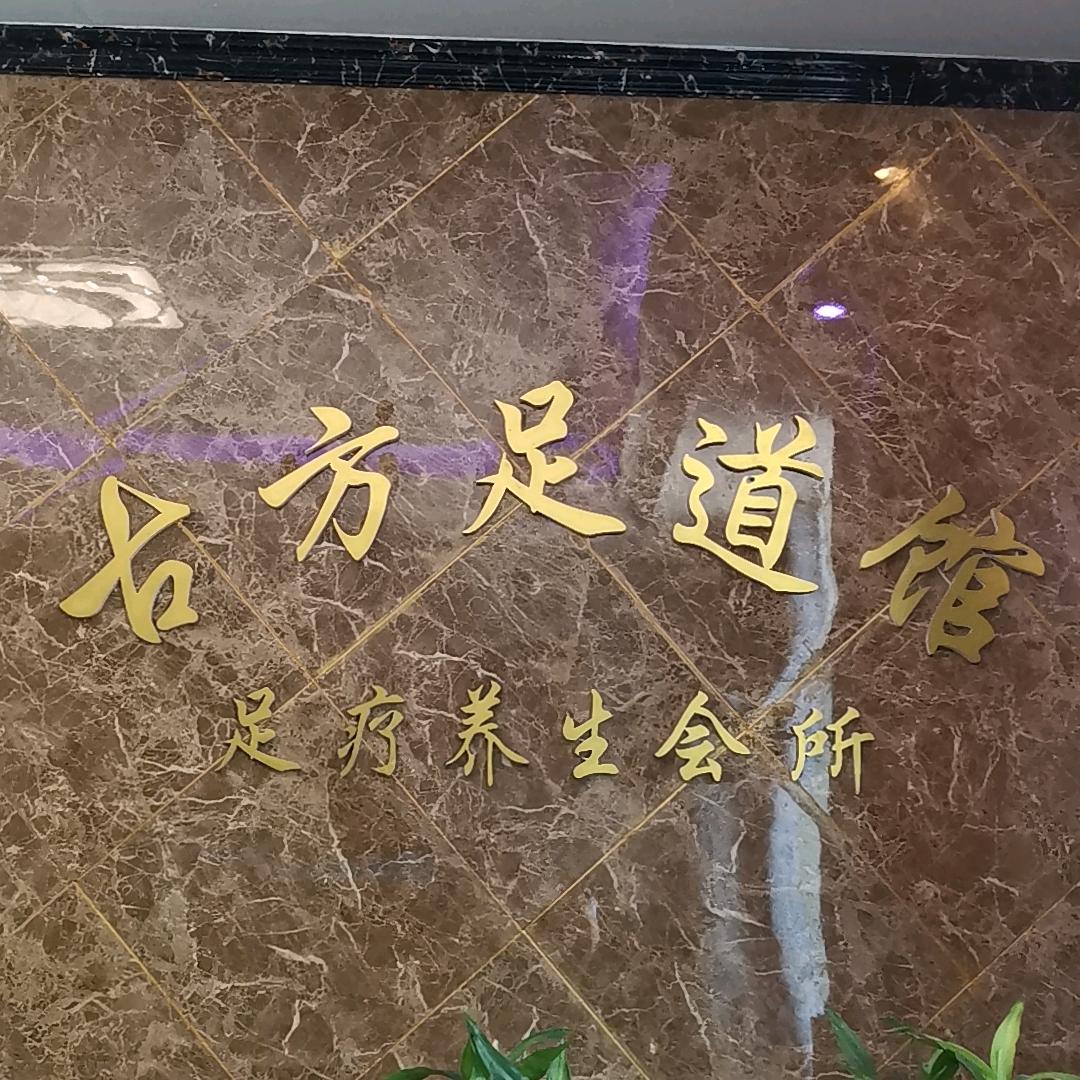 古方足道馆
足疗养生会所